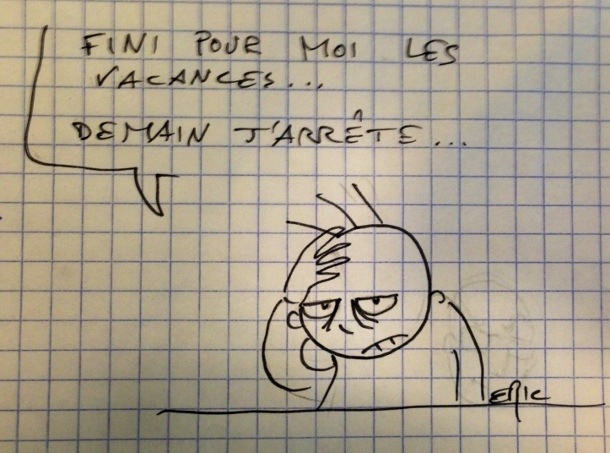 FINI POUR MOI LES
VACANCES...
DEMAIN J'ARRÊTE...
ERIC